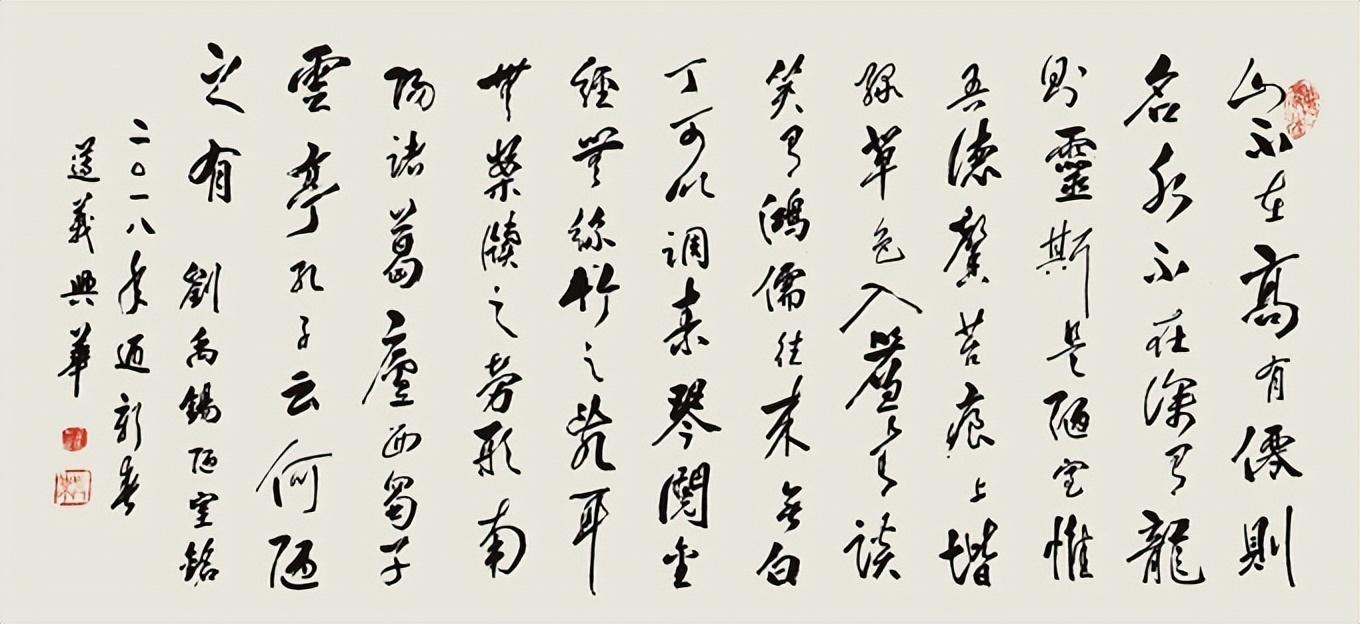 山不在高有僊則
名水不在深有龍
則靈斯是陋室惟
吾德馨苔痕上堦
綠草色入簾青談
笑有鴻儒往來無白
丁可以調素琴閱金
經無絲竹之亂耳
無案牘之勞形南
陽諸葛廬西蜀子
雲亭孔子云何陋
之有 劉禹錫陋室銘
二〇一八年迎新春
遵義興華